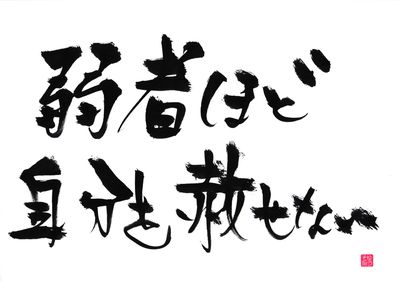 弱者ほど
自分も赦せない